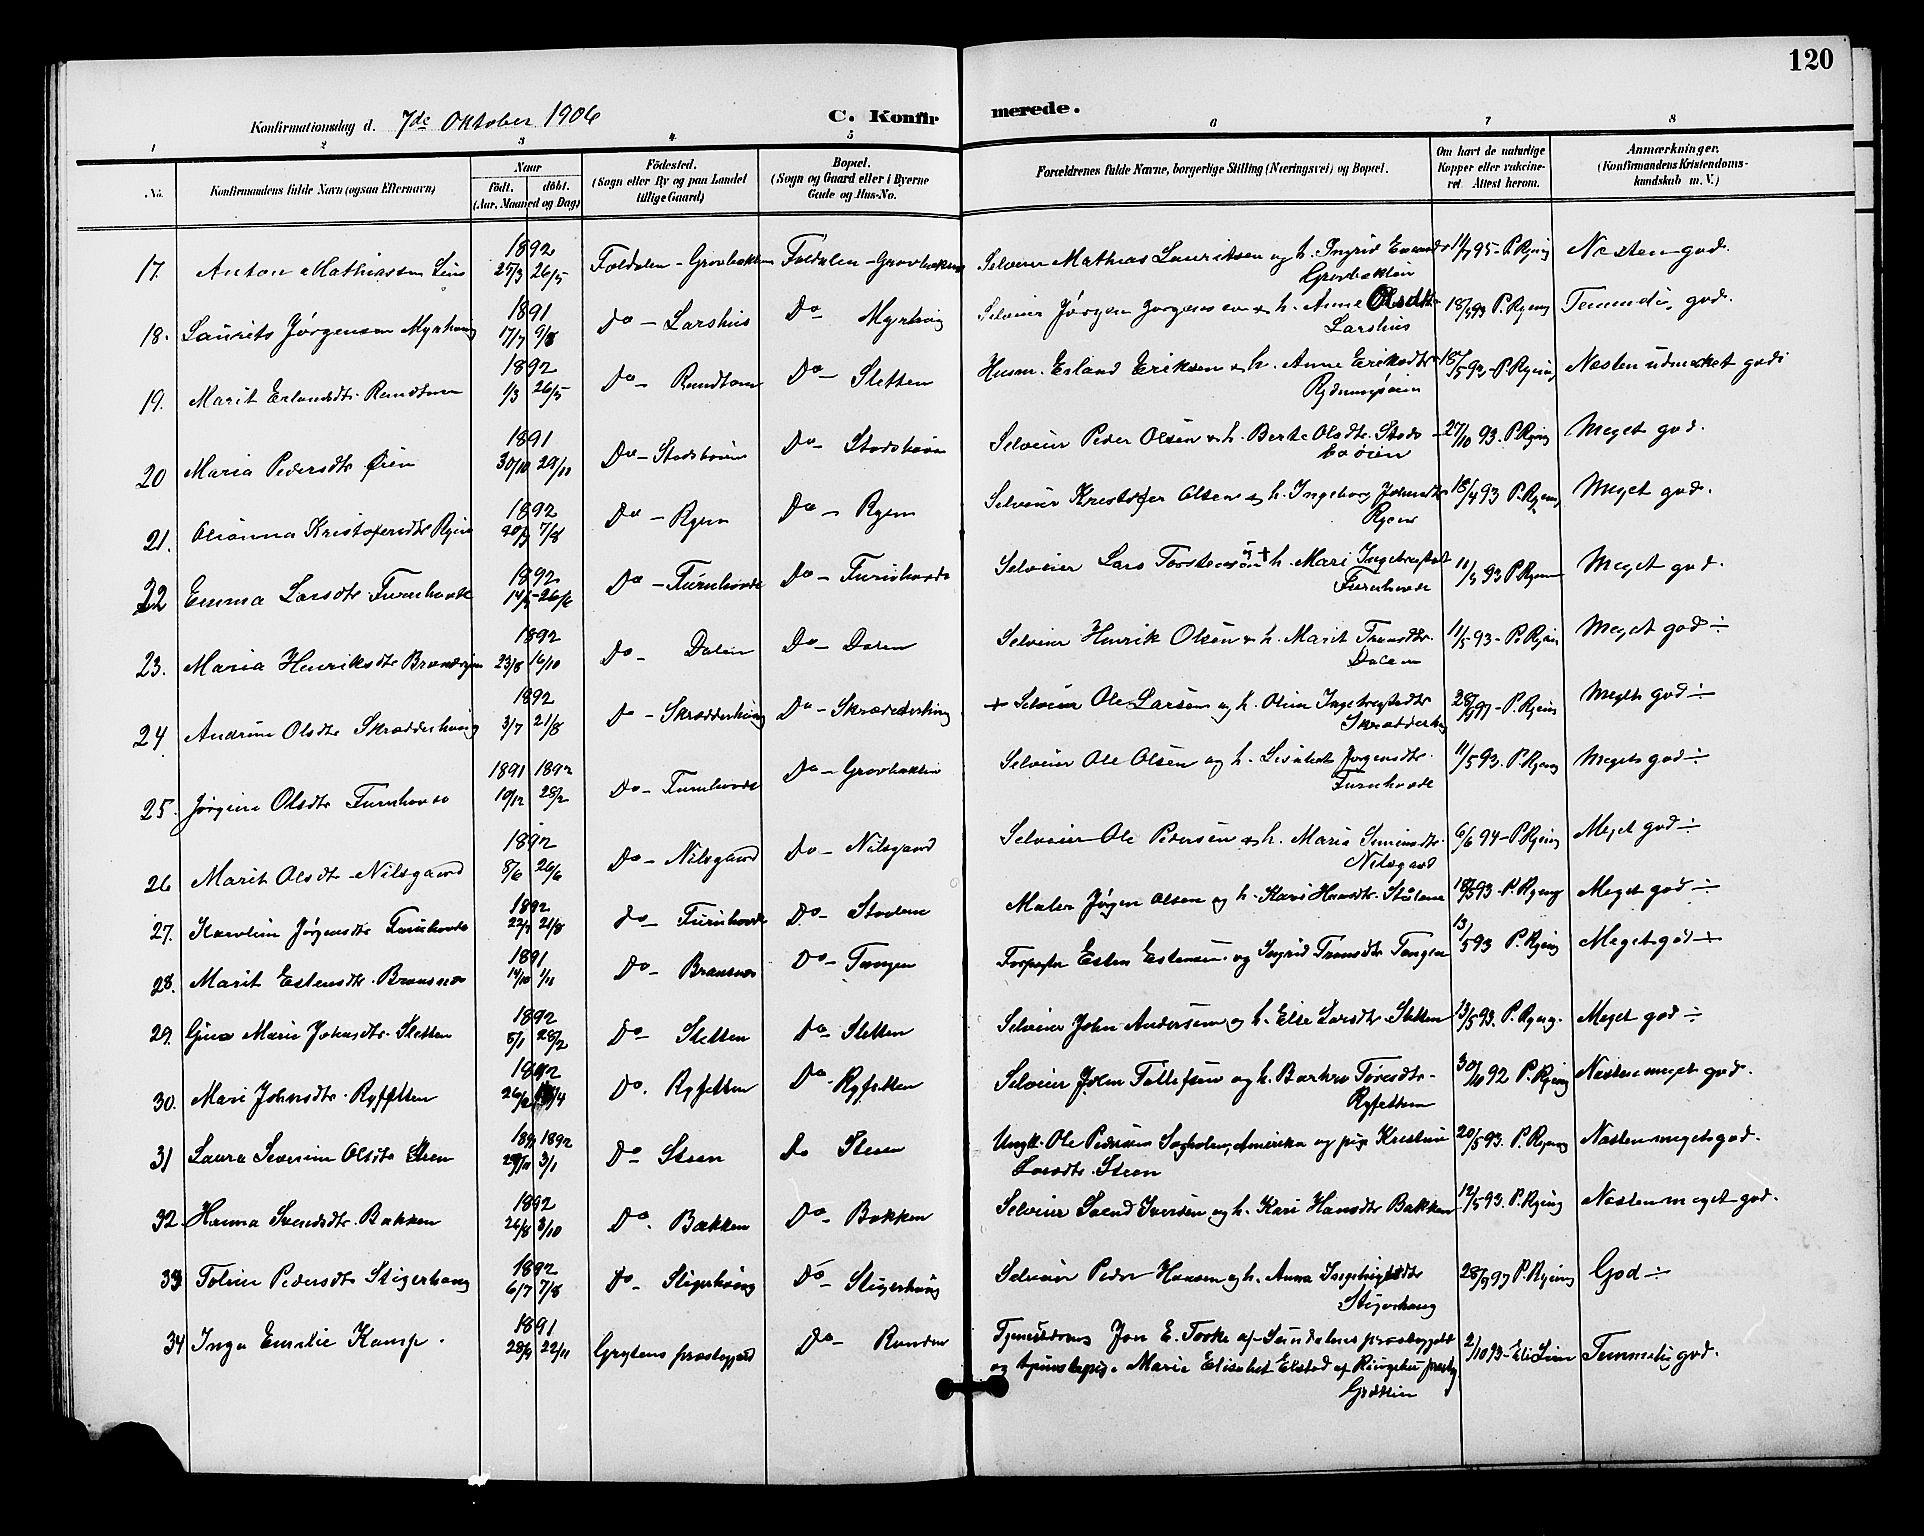 120
Konfirmationsdag d. 7de Oktober 1906 C. Konfirmerede.
1 2 3 4 5 6 7 8
No. Konfirmandens fulde Navn (ogsaa Efternavn) Naar født. døbt. (Aar, Maaned og Dag) Fødested. (Sogn eller By og paa Landet tillige Gaard) Bopæl. (Sogn og Gaard eller i Byerne Gade og Hus-No.) Forældrenes fulde Navne, borgerlige Stilling (Næringsvei) og Bopæl. Om havt de naturlige Kopper eller vakcineret. Attest herom. Anmærkninger. (Konfirmandens Kristendomskundskab m. V.)
17. Anton Mathiassen 1892 25/3 26/5 Foldalen - Grovbakken Foldalen - Grovbakken Selveier Mathias Lauritsen og h. Ingrid Grovbakken 11/7 95 - P. Ryeng Næsten god.
18. Laurits Jørgensen Myrhaug 1891 17/7 9/8 Do - Larshus Do Myrhaug Selveier Jørgen Jørgensen & h. Anne Olsdtr Larshus 18/5 93 P. Ryeng Temmelig god.
19. Marit Erlandsdtr 1892 1/3 26/5 Do - Do - Sletten Husm. Erland Eriksen & h. Anne Eriksdtr 18/5 93 - P. Ryeng Næsten udmerket god
20 Maria Pedersdtr Øien 1891 30/10 29/11 Do - Stadsbøien Do - Stadsbøien Selveier Peder Olsen & h. Berte Olsdtr. Stadsbøøien 27/10 93. P. Ryeng Meget god.
21. Olianna Kristofersdtr Ryen 1892 20/5 7/8 Do - Ryen Do - Ryen Selveier Kristofer Olsen & h. Ingeborg Johnsdtr Ryen 18/4 93 P. Ryeng Meget god.
22 Emma Larsdtr Furuhovde 1892 14/5 - 26/6 Do - Furuhovde Do - Furuhovde Selveier Lars Torstensen + h. Mari Ingebregtsdt Furuhovde 11/5 93 P. Ryeng Meget god.
23. Maria Henriksdtr 1892 23/8 16/10 Do - Dalen Do - Dalen Selveier Henrik Olsen & h. Marit Tronsdtr. Dalen 11/5 93 - P. Ryeng Meget god ÷
24 Andrine Olsdtr Skrædderhaug 1892 3/7 21/8 Do - Skrædderhaug Do - Skrædderhaug + Selveier Ole Larsen og h. Oline Ingebregtsdtr Skrædderhg 28/9 97 - P. Ryeng Meget god ÷
25. Jørgine Olsdtr Furuhovde 1891 1892 10/12 28/2 Do - Furuhovde Do - Grovbakken Selveier Ole Olsen og h. Lisabet Jørgensdtr. Furuhovde 11/5 93. P. Ryeng Meget god ÷
26 Marit Olsdtr Nilsgaard 1892 8/6 26/6 Do - Nilsgaard Do - Nilsgaard Selveier Ole Pedersen & h. Maria Simensdtr. Nilsgard 6/6 94 - P. Ryeng Meget god ÷
27. Karoline Jørgensdtr Furuhovde 1892 22/7 21/8 Do - Furuhovde Do - Maler Jørgen Olsen og h. Kari Hansdtr. 18/5 93 - P. Ryeng Meget god ÷
28. Marit Estensdtr. Brænsnes 1891 14/10 1/11 Do - Brænsnes Do - Tangen Forpagter Esten Estensen og Ingrid Tronsdtr Tangen 13/5 93 P. Ryeng Meget god ÷
29. Gina Marie Johnsdtr. Sletten 1892 5/1 28/2 Do - Sletten Do - Sletten Selveier John Andersen og h. Else Larsdtr. Sletten 13/5 93. P. Ryeng. Meget god ÷
30. Mari Johnsdtr. Ryfetten 1892 26/2 /4 Do. Ryfetten Do - Ryfetten Selveier John Tollefsen og h. Barbro Toresdtr. Ryfetten 30/10 92 P. Ryeng Næsten meget god.
31 Laura Severine Olsdtr Steen 1891 1892 29/11 3/1 Do - Steen Do Steen Ungk. Ole Pedersen Sagholen, Amerika og pige Kristine Larsdtr. Steen 20/5 93. P. Ryeng Næsten meget god.
32. Hanna Svendsdtr. Bakken 1892 26/8 3/10 Do. Bakken Do - Bakken Selveier Svend Iversen og h. Kari Hansdtr Bakken 12/5 93. P. Ryeng Næsten meget god.
33 Toline Pedersdtr Stigerhaug 1892 6/7 7/8 Do - Stigerhaug Do - Stigerhaug Selveier Peder Hansen og h. Anna Ingebrigtsdtr Stigerhaug 28/9 97 P. Ryeng God ÷
34 Inga Emilie Kamp. 1891 28/9 22/11 Grytens præstegjæld Do - Randen Tjenestedreng Jon E. Torke af Sundalens præstegjeld og tjenestepige Marie Elisabet Elstad af Ringebu præstg 2/10 93 - Temmelig god.